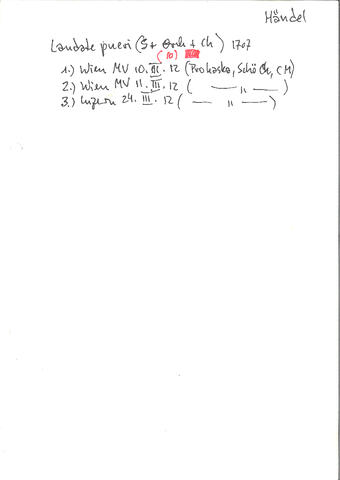 Händel
Laudate pueri (S + Orch + Ch) 1707
(10)
1.) Wien MV 10. III. 12 (Prohaska, Schö Ch, CM)
2.) Wien MV 11. III. 12 ( — " — )
3.) Luzern 24. III. 12 ( — " — )